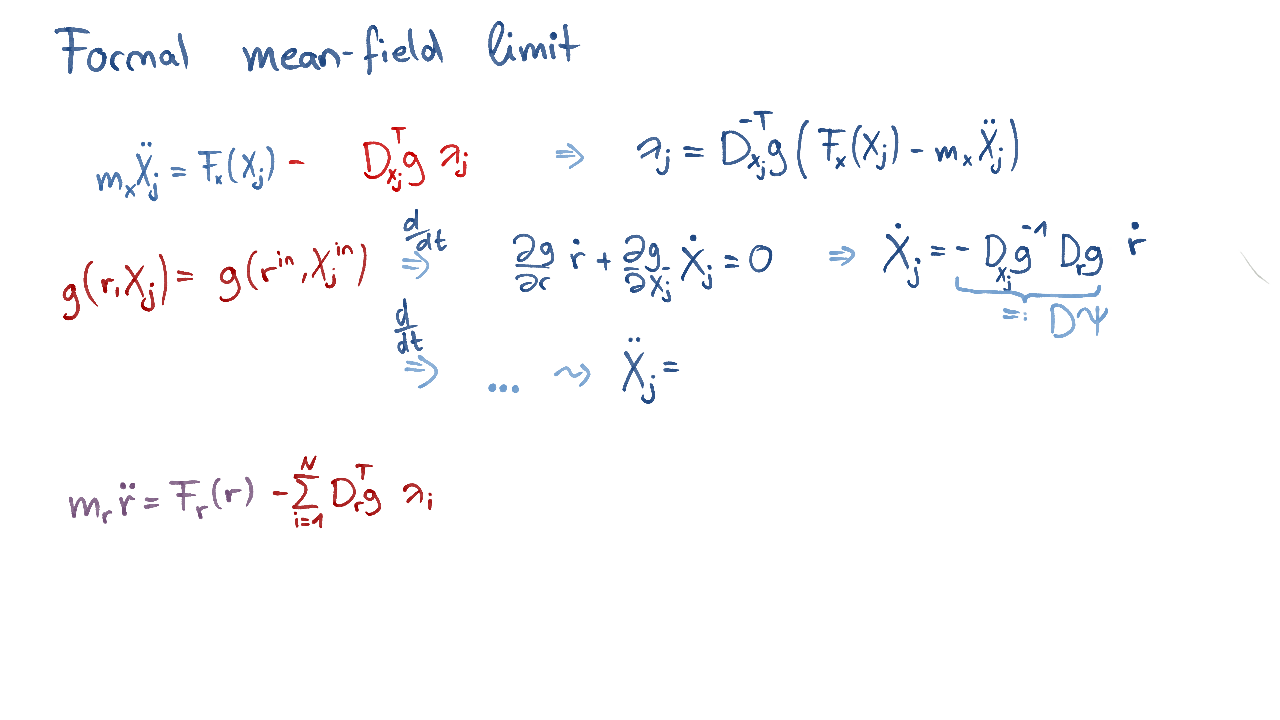 Formal mean-field limit
m_x Ẍ_j = F_x(X_j) - D_{x_j}^T g λ_j ⇒ λ_j = D_{x_j}^{-T} g (F_x(X_j) - m_x Ẍ_j)
g(r, X_j) = g(r^{in}, X_j^{in}) d/dt ⇒ ∂g/∂r ṙ + ∂g/∂X_j Ẋ_j = 0 ⇒ Ẋ_j = - D_{x_j} g^{-1} D_r g ṙ
=: DΨ
d/dt ⇒ ... ⇝ Ẍ_j =
m_r r̈ = F_r(r) - ∑_{i=1}^N D_r^T g λ_i